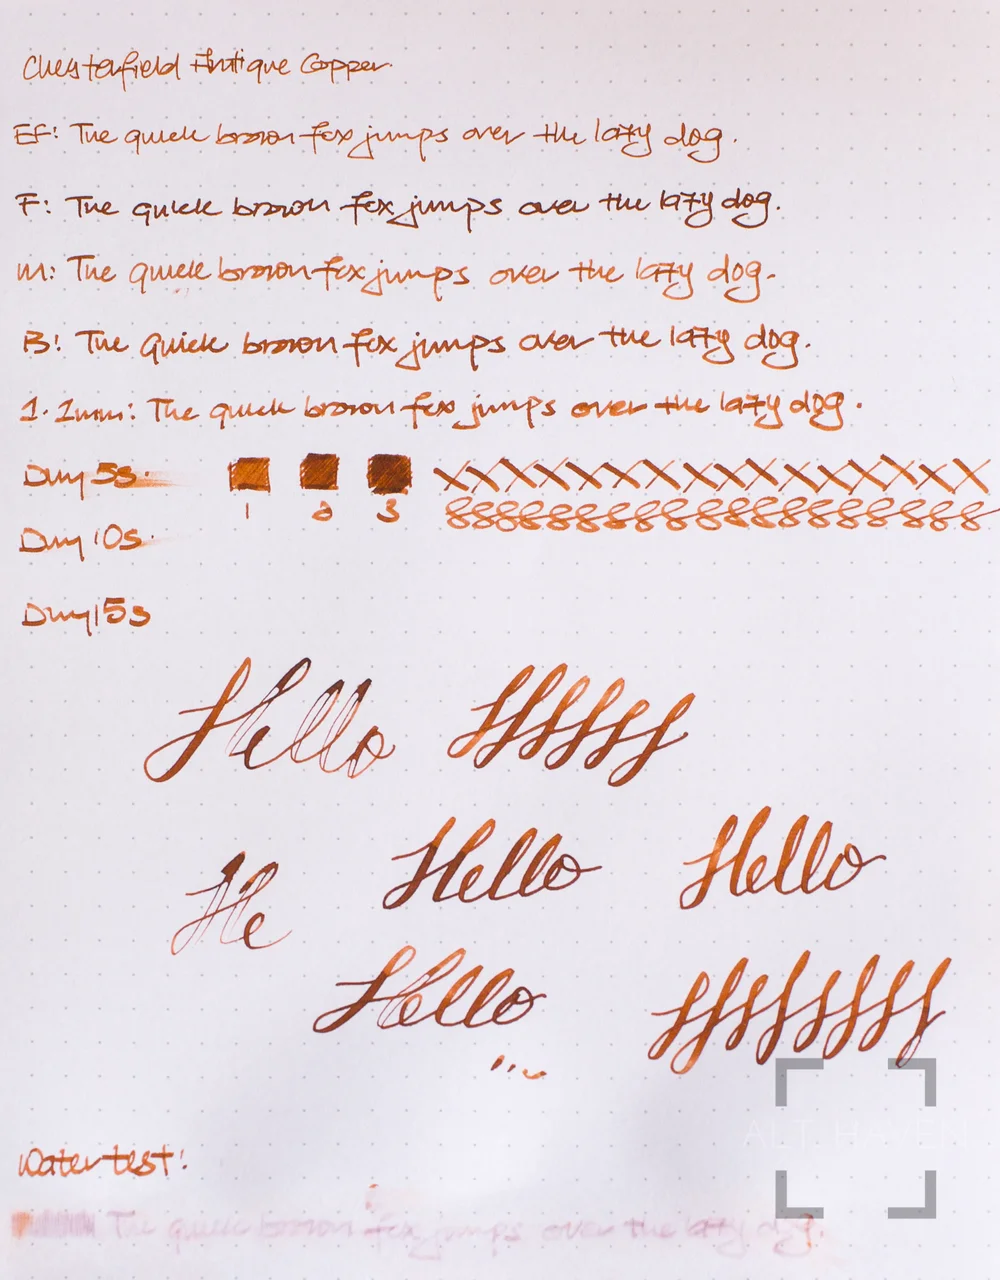 Chesterfield Antique Copper
EF: The quick brown fox jumps over the lazy dog.
F: The quick brown fox jumps over the lazy dog.
M: The quick brown fox jumps over the lazy dog.
B: The quick brown fox jumps over the lazy dog.
1.1mm: The quick brown fox jumps over the lazy dog.
Dry 5s.
1 2 3
XXXXXXXXXXXXXXXX
Dry 10s.
Dry 15s
Hello
Hello Hello
He
Hello
Water test:
The quick brown fox jumps over the lazy dog.